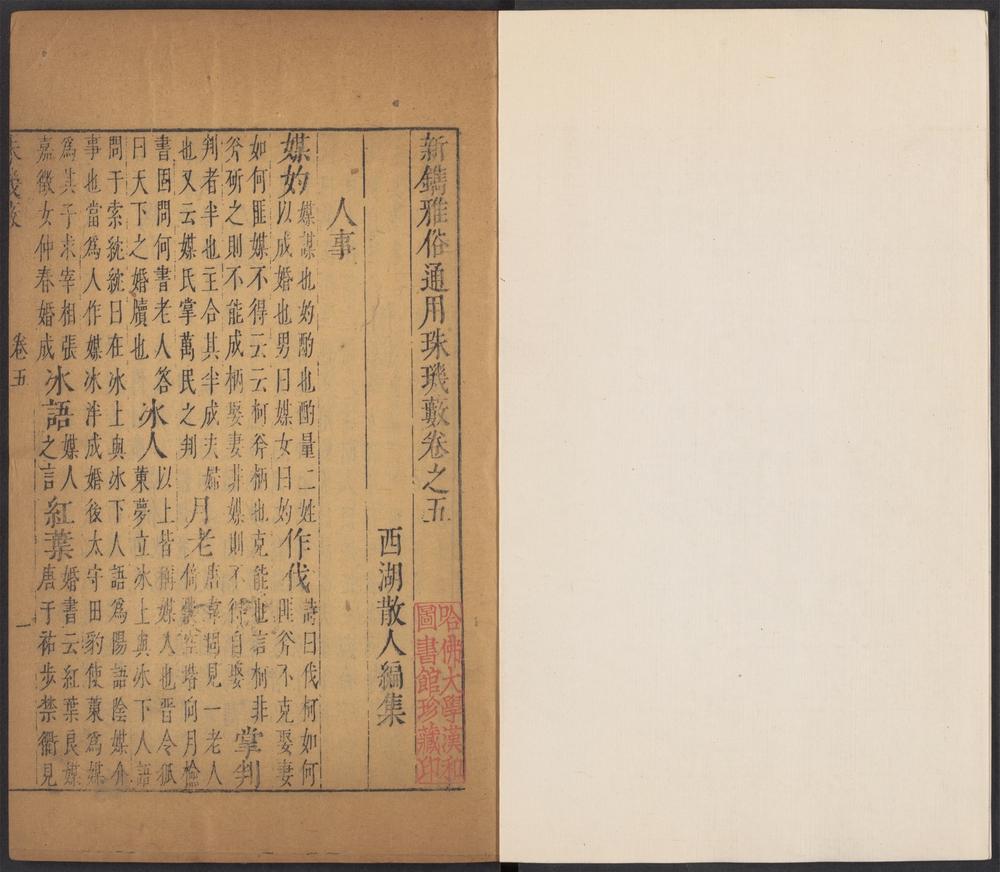 新鐫雅俗通用珠璣藪卷之五
哈佛大學漢和
圖書館珍藏印
西湖散人編集
人事
媒妁媒謀也妁酌也酌量二姓以成婚也男曰媒女曰妁作伐詩曰伐柯如何匪斧不克娶妻
如何匪媒不得云云柯斧柄也克能也言柯非斧斫之則不能成柄娶妻非媒則不得自娶掌判
判者半也主合其半成夫婦也又云媒氏掌萬民之判月老唐韋固見一老人倚囊坐堦向月檢
書固問何書老人答曰天下之婚牘也氷人以上皆稱媒人也晉令狐策夢立氷上與氷下人語
問于索紞紞曰在氷上與氷下人語為陽語陰媒介事也當為人作媒氷泮成婚後太守田豹使策為媒
為其子求宰相張嘉徵女仲春婚成氷語媒人之言紅葉婚書云紅葉良媒唐于祐步禁衢見
卷五
一